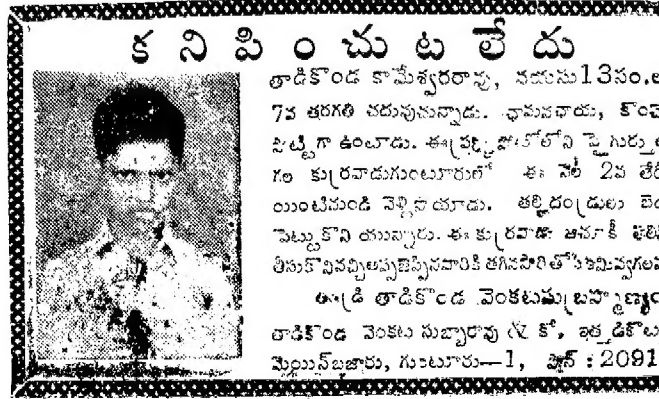 కనిపించుటలేదు
తాడికొండ కామేశ్వరరావు, వయసు 13 సం.ల
7వ తరగతి చదువుచున్నాడు. చామనఛాయ, కొంచె
పొట్టిగా ఉంటాడు. ఈ ప్రక్క ఫోటోలోని పై గుర్తుల
గల కుర్రవాడు గుంటూరులో ఈ నెల 2వ తేది
యింటినుండి వెళ్ళిపోయాడు. తల్లిదండ్రులు బెం
పెట్టుకొని యున్నారు. ఈ కుర్రవాణి ఆచూకీ
తీసుకొనివచ్చి అప్పజెప్పినవారికి తగిన పారితోషికమివ్వగలవ
తాడికొండ వెంకటసుబ్రహ్మణ్యం
తాడికొండ వెంకట సుబ్బారావు & కో, ఇత్తడికొట
మెయిన్‌బజారు, గుంటూరు—1, ఫోన్ : 2091